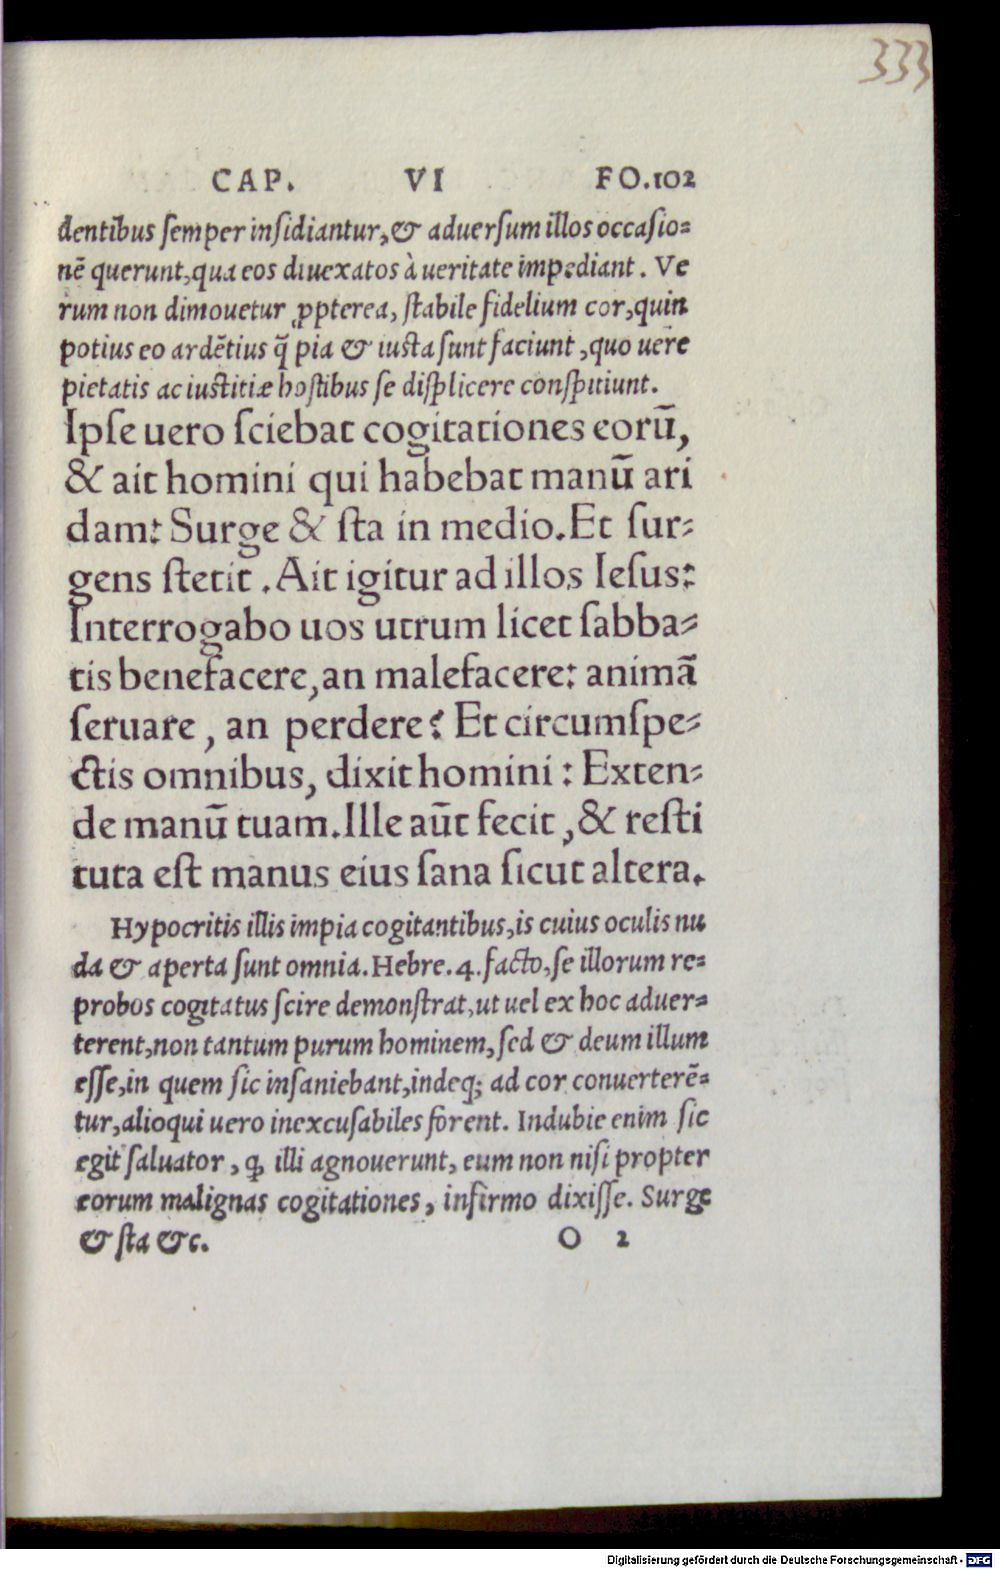 333
CAP. VI FO.102
dentibus semper insidiantur,& aduersum illos occasio=
nē querunt,qua eos diuexatos à ueritate impediant. Ve
rum non dimouetur ꝓpterea, stabile fidelium cor,quin
potius eo ardētius q̃ pia & iusta sunt faciunt,quo uere
pietatis ac iustitiæ hostibus se displicere conspitiunt.
Ipse uero sciebat cogitationes eorū,
& ait homini qui habebat manū ari
dam: Surge & sta in medio.Et sur=
gens stetit .Ait igitur ad illos Iesus:
Interrogabo uos utrum licet sabba=
tis benefacere,an malefacere: animā
seruare, an perdere? Et circumspe=
ctis omnibus, dixit homini: Exten=
de manū tuam.Ille aūt fecit,& resti
tuta est manus eius sana sicut altera.
Hypocritis illis impia cogitantibus,is cuius oculis nu
da & aperta sunt omnia.Hebre.4.facto,se illorum re=
probos cogitatus scire demonstrat,ut uel ex hoc aduer=
terent,non tantum purum hominem,sed & deum illum
esse,in quem sic insaniebant,indeq; ad cor conuerterē=
tur,alioqui uero inexcusabiles forent. Indubie enim sic
egit saluator, ꝙ illi agnouerunt, eum non nisi propter
eorum malignas cogitationes, infirmo dixisse. Surge
& sta &c. O 2
Digitalisierung gefördert durch die Deutsche Forschungsgemeinschaft - DFG